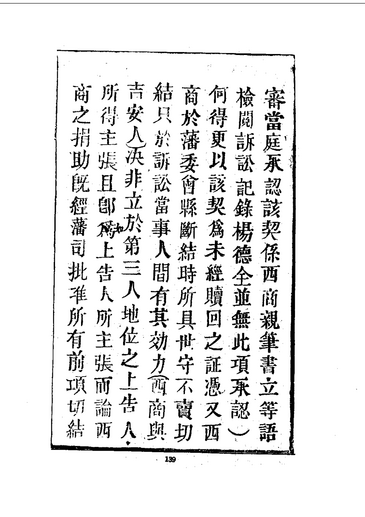 審當庭承認該契係西商親筆書立等語
檢閱訴訟記錄楊德全並無此項承認)
何得更以該契爲未經贖回之証憑又西
商於藩委會縣斷結時所具世守不賣切
結只於訴訟當事人間有其効力(西商與
吉安人)決非立於第三人地位之上告人
所得主張且卽如爲上告人所主張而論西
商之捐助旣經藩司批准所有前項切結
139